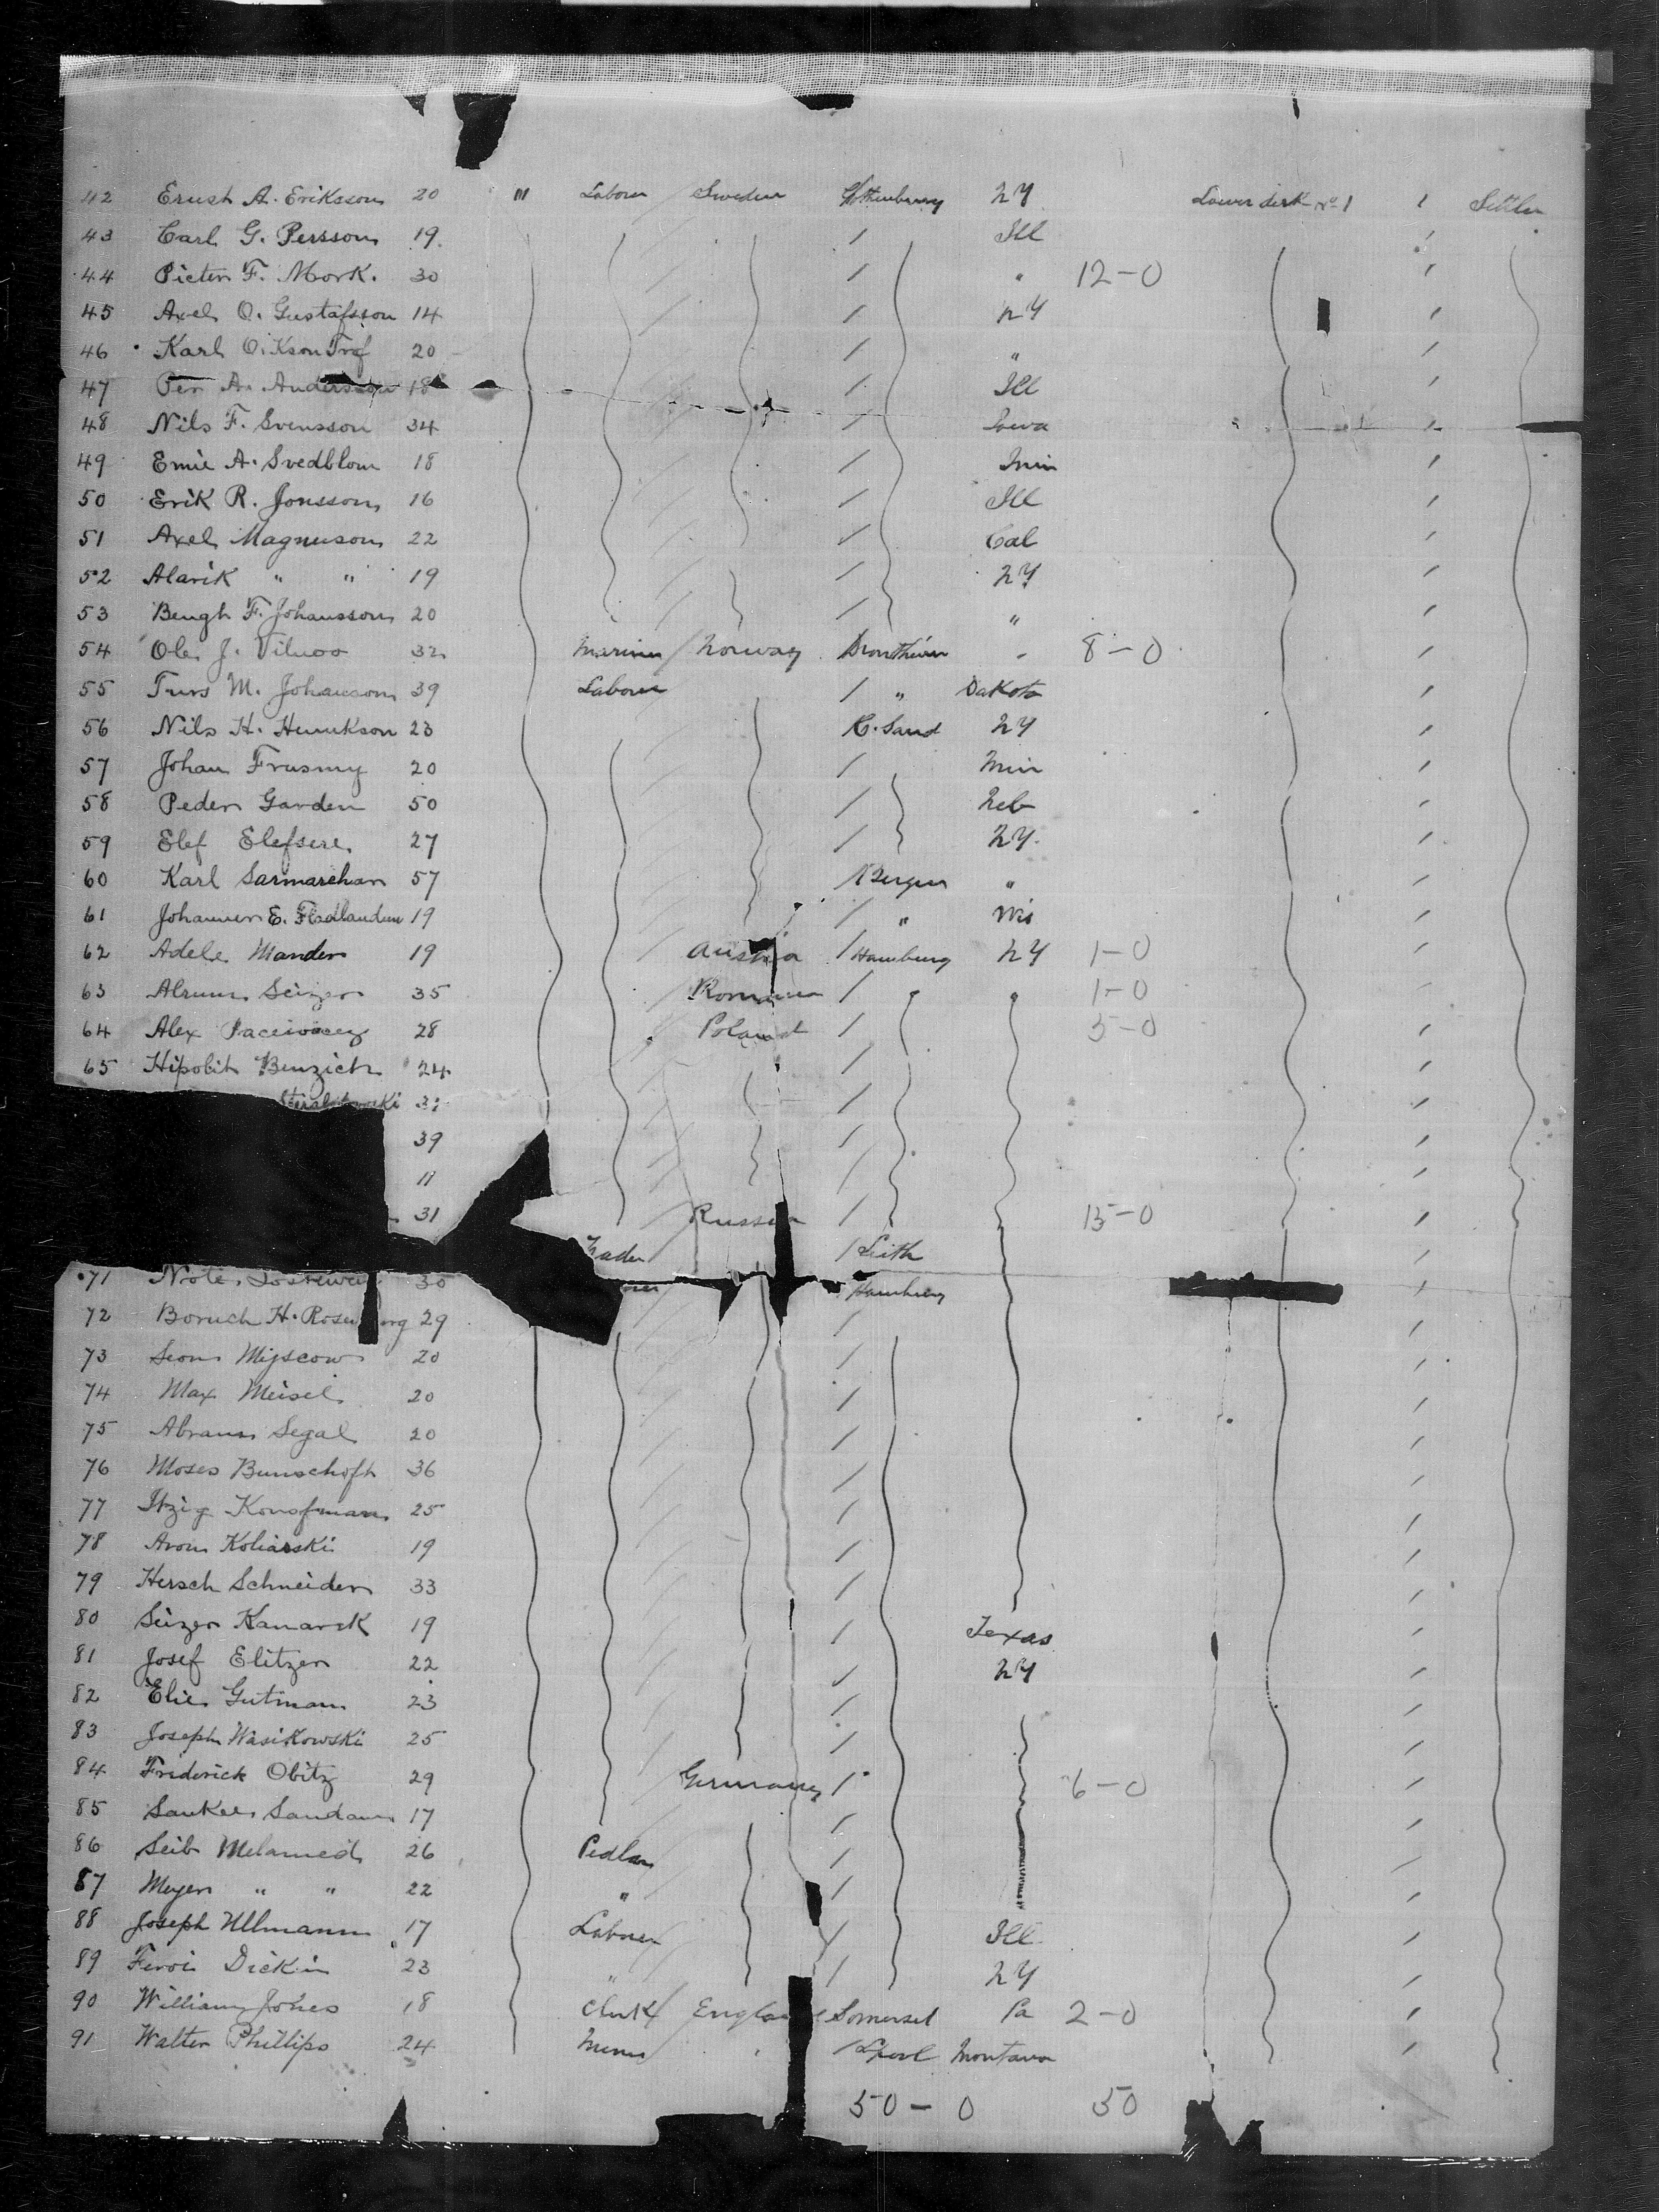 42 Ernst A. Eriksson 20 Labour Sweden Gothenburg NY Lower deck No 1 1 Settler
43 Carl G. Persson 19 / Ill
44 Pieter F. Mork. 30 / " 12-0
45 Axel O. Gustafsson 14 / NY
46 Karl 20 / "
47 Per A. Andersson 18 / Ill
48 Nils F. Svensson 34 / Iowa
49 Emil A. Svedblom 18 / Min
50 Erik R. Jonsson 16 / Ill
51 Axel Magnuson 22 / Cal
52 Alarik " " 19 / NY
53 Bength F. Johansson 20 / "
54 Ole J. 32 Mariner Norway Drontheim " 8-0
55 M. Johanson 39 Labour / " Dakota
56 Nils H. Henrikson 23 K. Sand NY
57 Johan 20 / Min
58 Peder Garden 50 / Neb
59 Elef 27 / NY.
60 Karl 57 / Bergen "
61 E. 19 / " Wis
62 Adele Mander 19 Austria / Hamburg NY 1-0
63 Seizer 35 Romania / 1-0
64 Alex 28 Poland / 5-0
65 Hipolit Benzich 24 /
39 /
11 /
31 Russia / 13-0
Trader / Leith
71 Note 30 Hamburg
72 Boruch H. Rosenberg 29 /
73 20 /
74 Max Meisel 20 /
75 Abram Segal 20 /
76 Moses Bunschoft 36 /
77 Itzig 25 /
78 Avom Koliarski 19 /
79 Hersch Schneider 33 /
80 Seizer Kanarek 19 / Texas
81 Josef Elitzer 22 / NY
82 Elie Gutman 23 /
83 Joseph Wasikowski 25 /
84 Friderick Obitz 29 Germany / 6-0
85 17 /
86 Leib Melamed 26 Pedlar /
87 Meyer " " 22 " /
88 Joseph Ullmann 17 Labour / Ill
89 Dickin 23 " / NY
90 William Jones 18 Clerk England Somerset Pa 2-0
91 Walter Phillips 24 Miner " / Lpool Montana
50-0 50